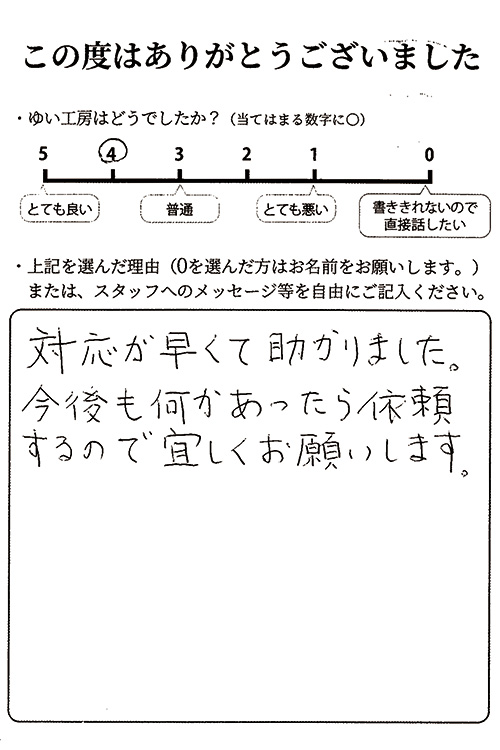 この度はありがとうございました
・ゆい工房はどうでしたか？（当てはまる数字に〇）
5 4 3 2 1 0
とても良い 普通 とても悪い 書ききれないので
直接話したい
・上記を選んだ理由（0を選んだ方はお名前をお願いします。）
または、スタッフへのメッセージ等を自由にご記入ください。
対応が早くて助かりました。
今後も何かあったら依頼
するので宜しくお願いします。